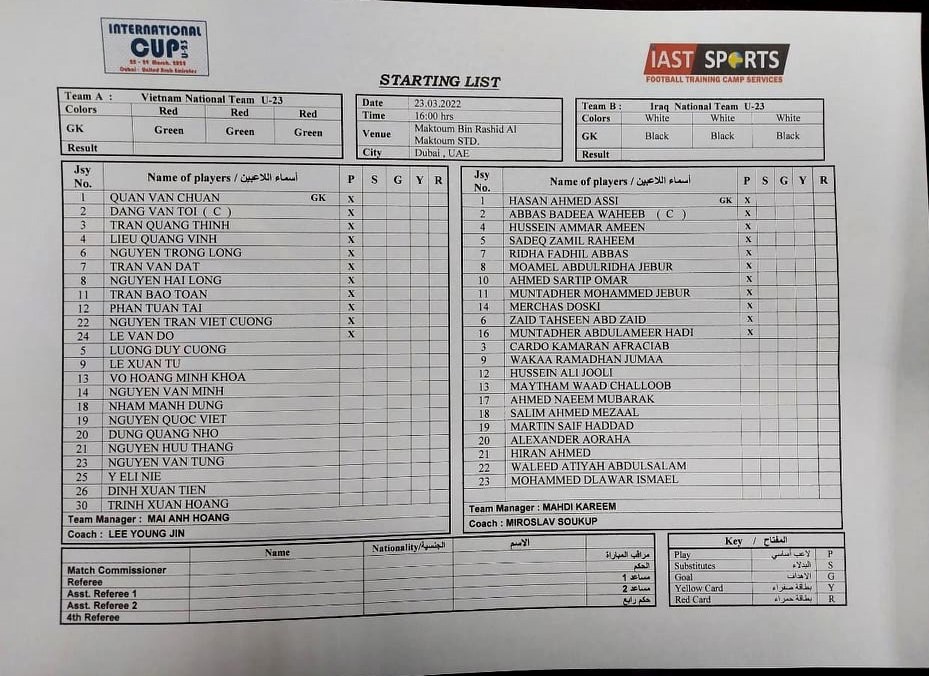 INTERNATIONAL
CUP U-23
23 - 29 March, 2022
Dubai - United Arab Emirates
IAST SPORTS
FOOTBALL TRAINING CAMP SERVICES
STARTING LIST
Team A : Vietnam National Team U-23
Colors Red Red Red
GK Green Green Green
Result
Date 23.03.2022
Time 16:00 hrs
Venue Maktoum Bin Rashid Al
Maktoum STD.
City Dubai , UAE
Team B : Iraq National Team U-23
Colors White White White
GK Black Black Black
Result
Jsy No. Name of players / أسماء اللاعبين P S G Y R
1 QUAN VAN CHUAN GK X
2 DANG VAN TOI ( C ) X
3 TRAN QUANG THINH X
4 LIEU QUANG VINH X
6 NGUYEN TRONG LONG X
7 TRAN VAN DAT X
8 NGUYEN HAI LONG X
11 TRAN BAO TOAN X
12 PHAN TUAN TAI X
22 NGUYEN TRAN VIET CUONG X
24 LE VAN DO X
5 LUONG DUY CUONG
9 LE XUAN TU
13 VO HOANG MINH KHOA
14 NGUYEN VAN MINH
18 NHAM MANH DUNG
19 NGUYEN QUOC VIET
20 DUNG QUANG NHO
21 NGUYEN HUU THANG
23 NGUYEN VAN TUNG
25 Y ELI NIE
26 DINH XUAN TIEN
30 TRINH XUAN HOANG
Team Manager : MAI ANH HOANG
Coach : LEE YOUNG JIN
Jsy No. Name of players / أسماء اللاعبين P S G Y R
1 HASAN AHMED ASSI GK X
2 ABBAS BADEEA WAHEEB ( C ) X
4 HUSSEIN AMMAR AMEEN X
5 SADEQ ZAMIL RAHEEM X
7 RIDHA FADHIL ABBAS X
8 MOAMEL ABDULRIDHA JEBUR X
10 AHMED SARTIP OMAR X
11 MUNTADHER MOHAMMED JEBUR X
14 MERCHAS DOSKI X
6 ZAID TAHSEEN ABD ZAID X
16 MUNTADHER ABDULAMEER HADI X
3 CARDO KAMARAN AFRACIAB
9 WAKAA RAMADHAN JUMAA
12 HUSSEIN ALI JOOLI
13 MAYTHAM WAAD CHALLOOB
17 AHMED NAEEM MUBARAK
18 SALIM AHMED MEZAAL
19 MARTIN SAIF HADDAD
20 ALEXANDER AORAHA
21 HIRAN AHMED
22 WALEED ATIYAH ABDULSALAM
23 MOHAMMED DLAWAR ISMAEL
Team Manager : MAHDI KAREEM
Coach : MIROSLAV SOUKUP
Name Nationality/الجنسية الاسم
Match Commissioner مراقب المباراة
Referee الحكم
Asst. Referee 1 مساعد 1
Asst. Referee 2 مساعد 2
4th Referee حكم رابع
Key / المفتاح
Play لاعب أساسي P
Substitutes البدلاء S
Goal الاهداف G
Yellow Card بطاقة صفراء Y
Red Card بطاقة حمراء R